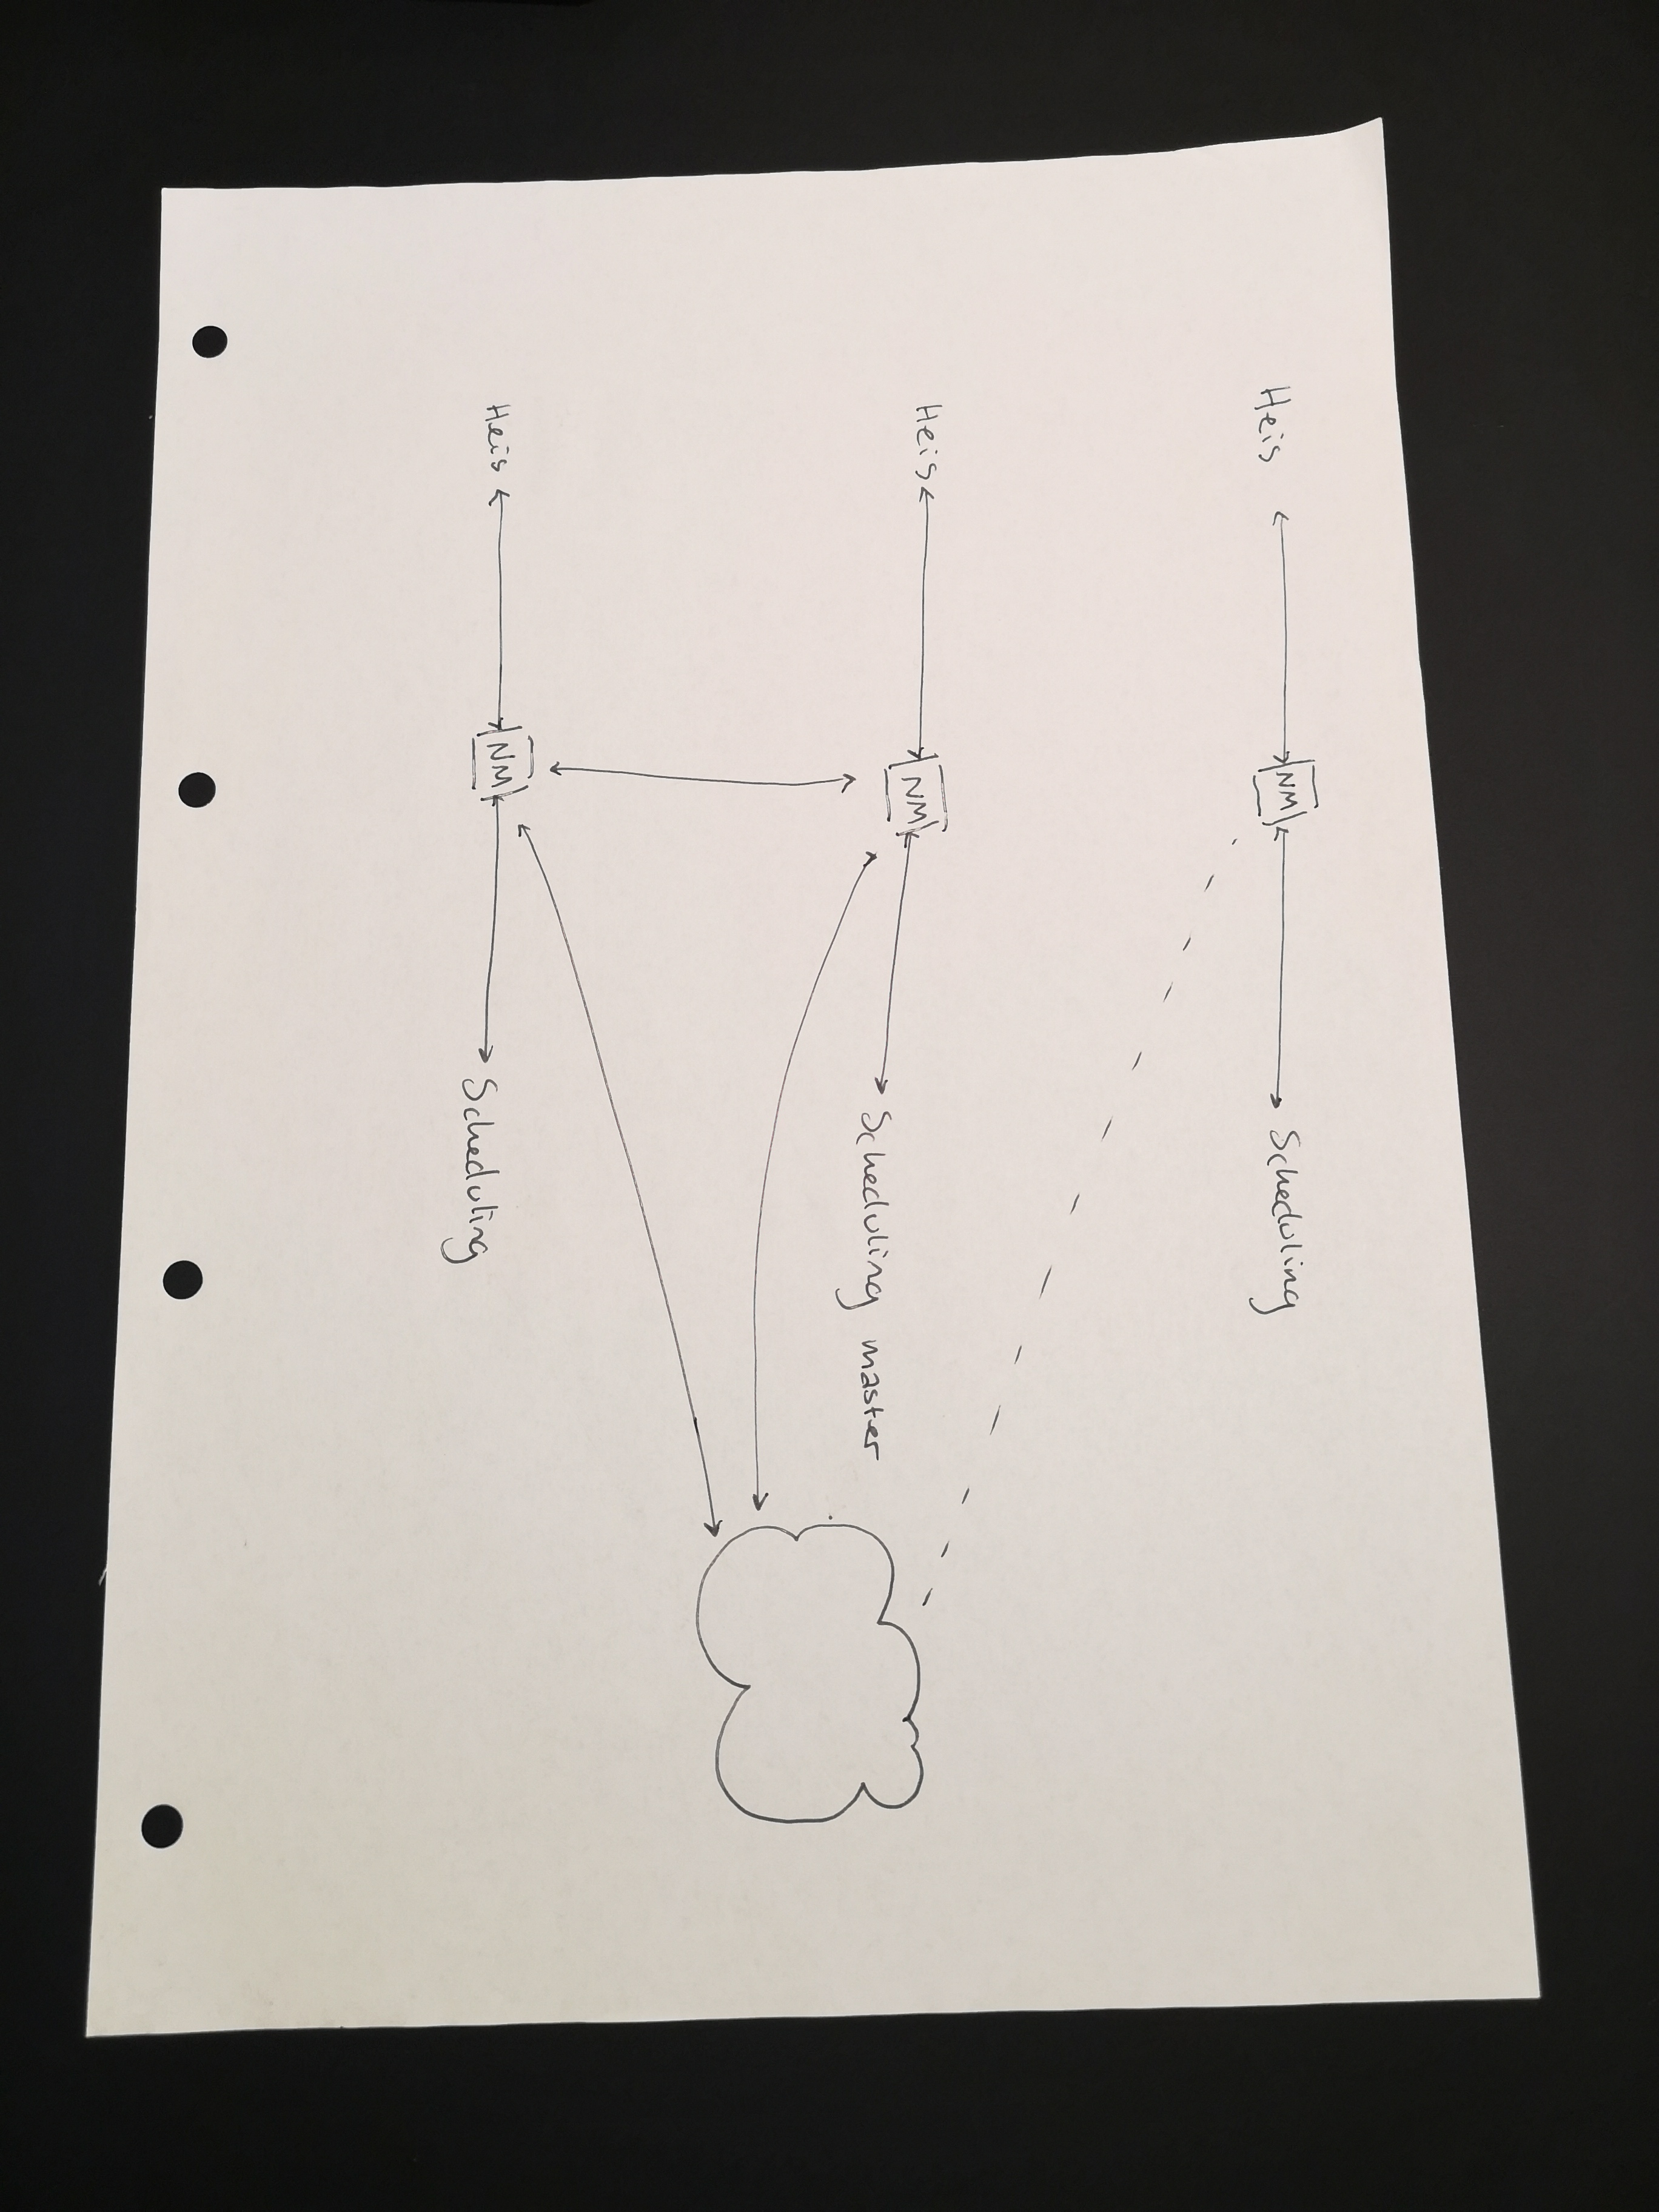 Heis
NM
Scheduling
Heis
NM
Scheduling master
Heis
NM
Scheduling